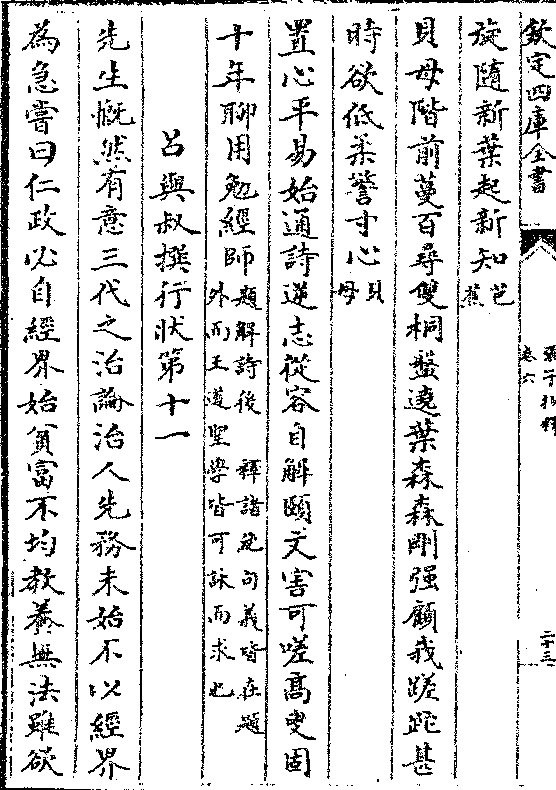 欽定四庫全書
張子抄釋
卷六
二十三
旋隨新葉起新知芭蕉
貝母階前蔓百尋雙桐盤遶葉森森剛强顧我蹉跎甚
時欲低柔警寸心貝母
置心平易始通詩逆志從容自解頤文害可嗟髙叟固
十年聊用勉經師題解詩後 釋諸絶句義皆在題外而王道聖學皆可詠而求也
吕與叔撰行狀第十一
先生慨然有意三代之治論治人先務未始不以經界
為急嘗曰仁政必自經界始貧富不均教養無法雖欲